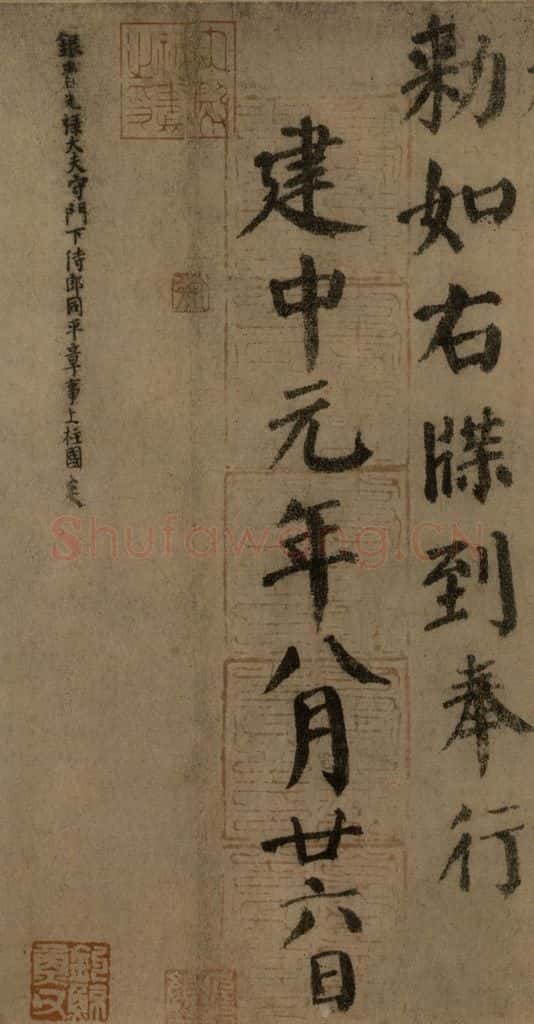 勅如右牒到奉行
建中元年八月廿六日
銀青光祿大夫守門下侍郎同平章事上柱國炎
Shufawang.CN